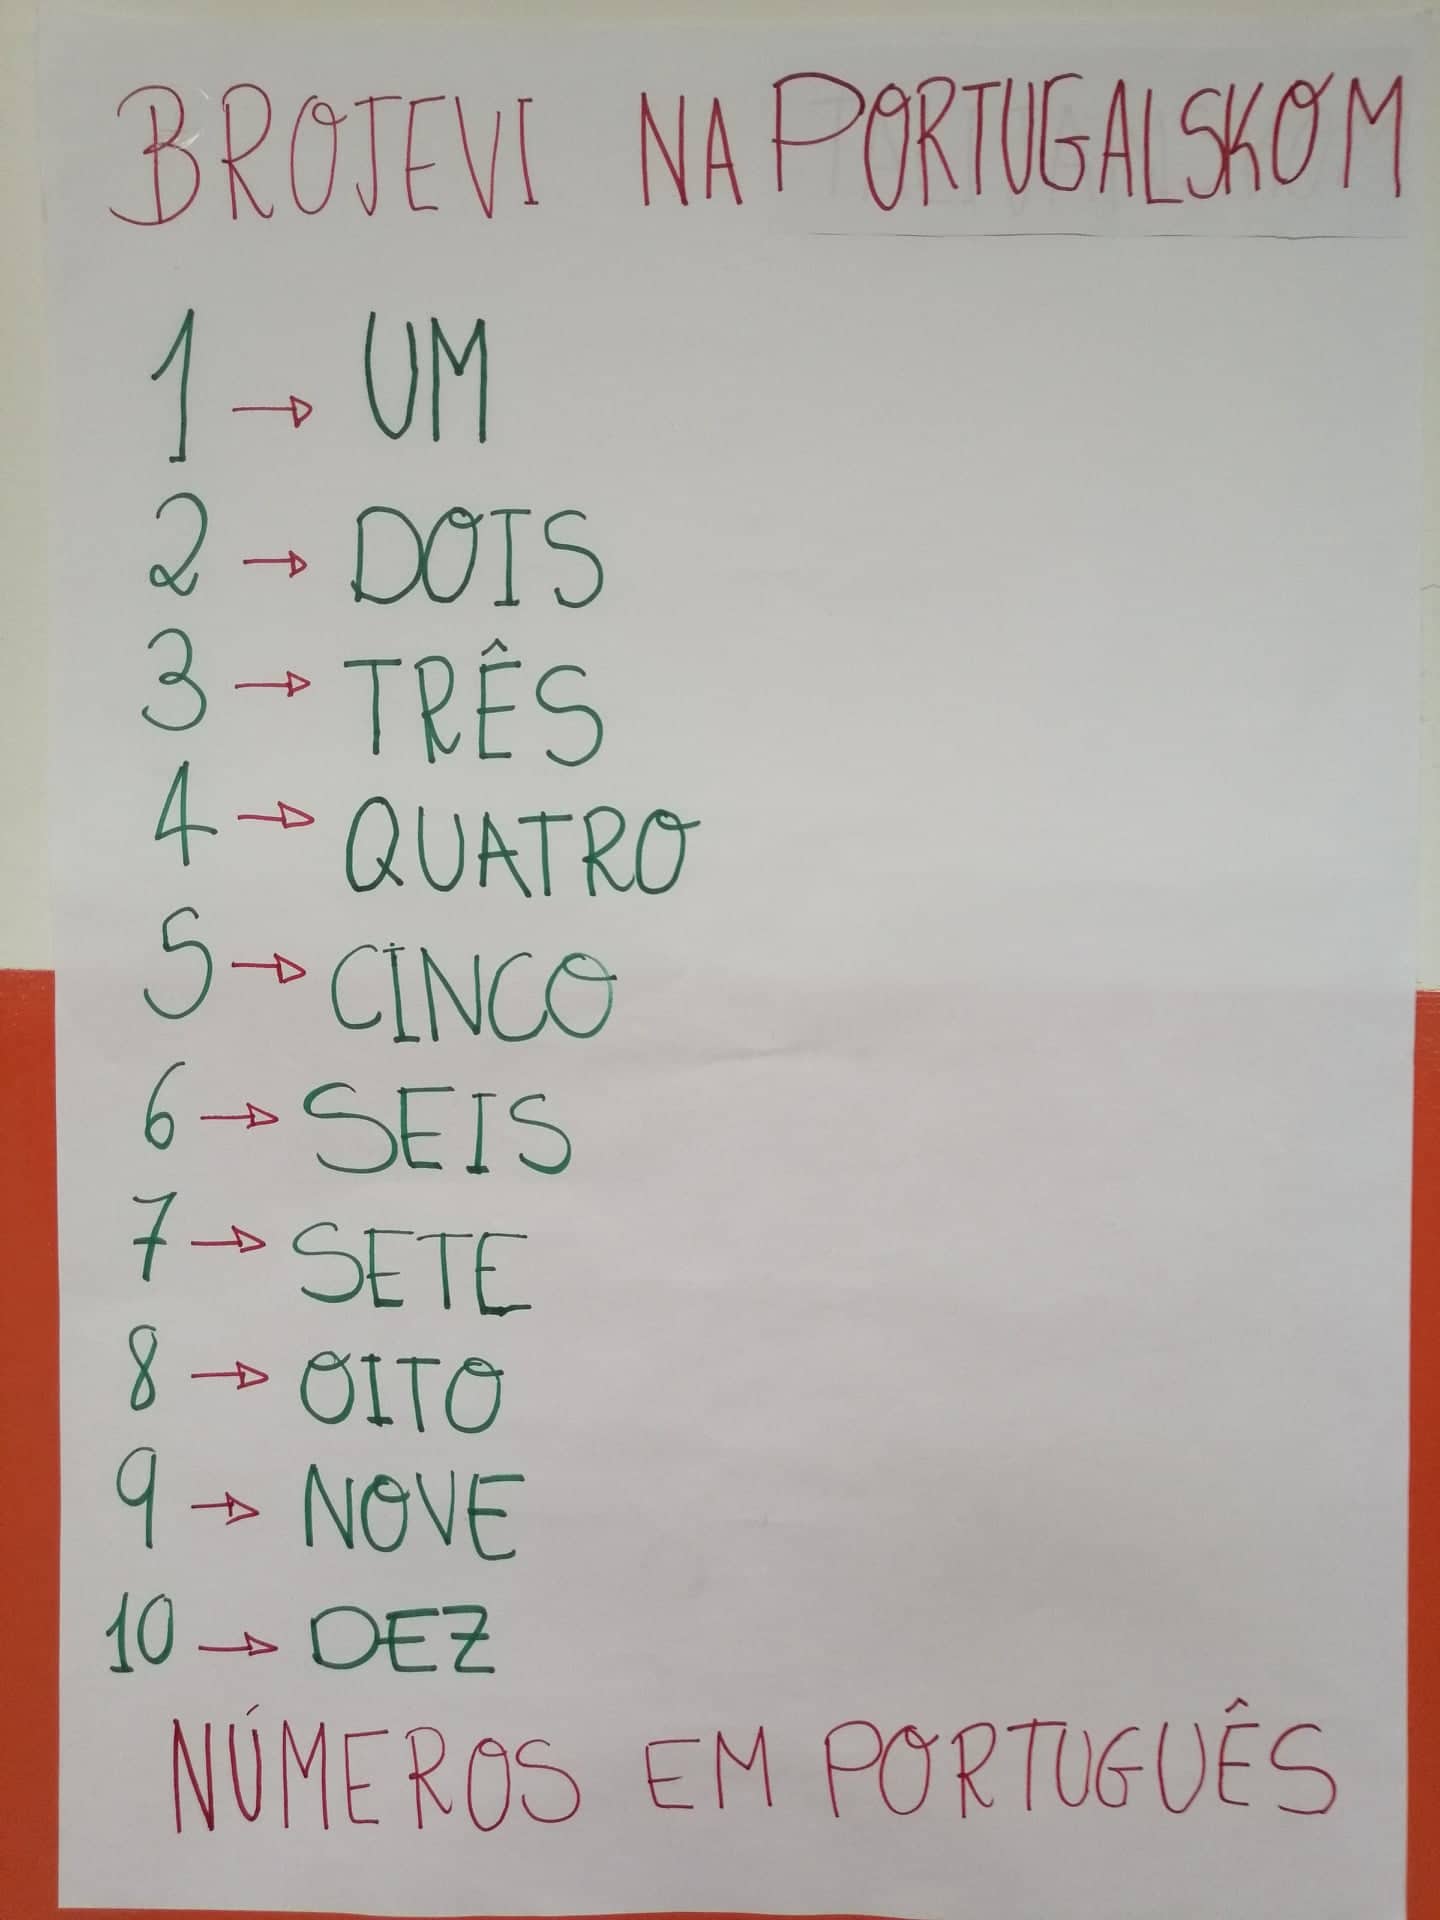 BROJEVI NA PORTUGALSKOM
1 → UM
2 → DOIS
3 → TRÊS
4 → QUATRO
5 → CINCO
6 → SEIS
7 → SETE
8 → OITO
9 → NOVE
10 → DEZ
NÚMEROS EM PORTUGUÊS